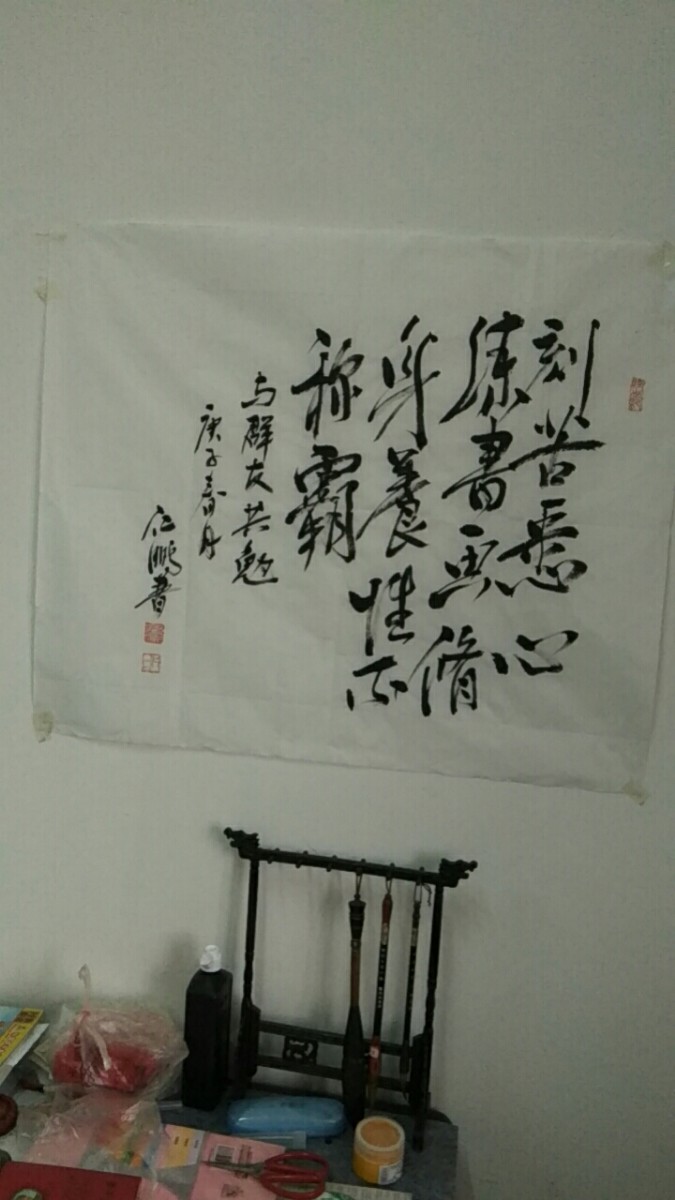 刻苦悉心
练书画修
身养性不
称霸
与群友共勉
庚子春月
鹏书